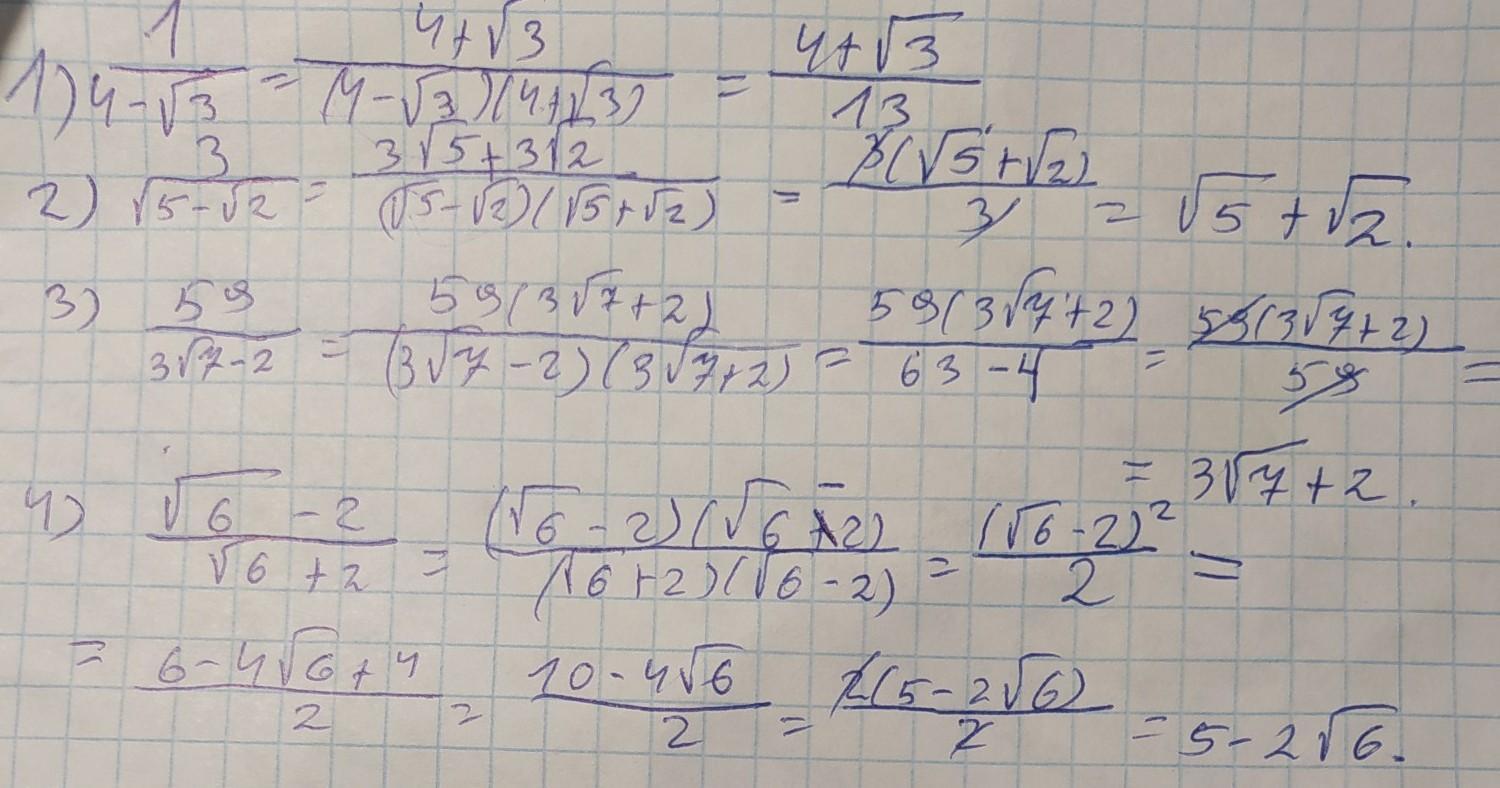 1) 1/(4-√3) = (4+√3)/((4-√3)(4+√3)) = (4+√3)/13
2) 3/(√5-√2) = (3√5+3√2)/((√5-√2)(√5+√2)) = 3(√5+√2)/3 = √5+√2.
3) 59/(3√7-2) = 59(3√7+2)/((3√7-2)(3√7+2)) = 59(3√7+2)/(63-4) = 59(3√7+2)/59 =
= 3√7+2.
4) (√6-2)/(√6+2) = (√6-2)(√6-2)/((√6+2)(√6-2)) = (√6-2)²/2 =
= (6-4√6+4)/2 = (10-4√6)/2 = 2(5-2√6)/2 = 5-2√6.